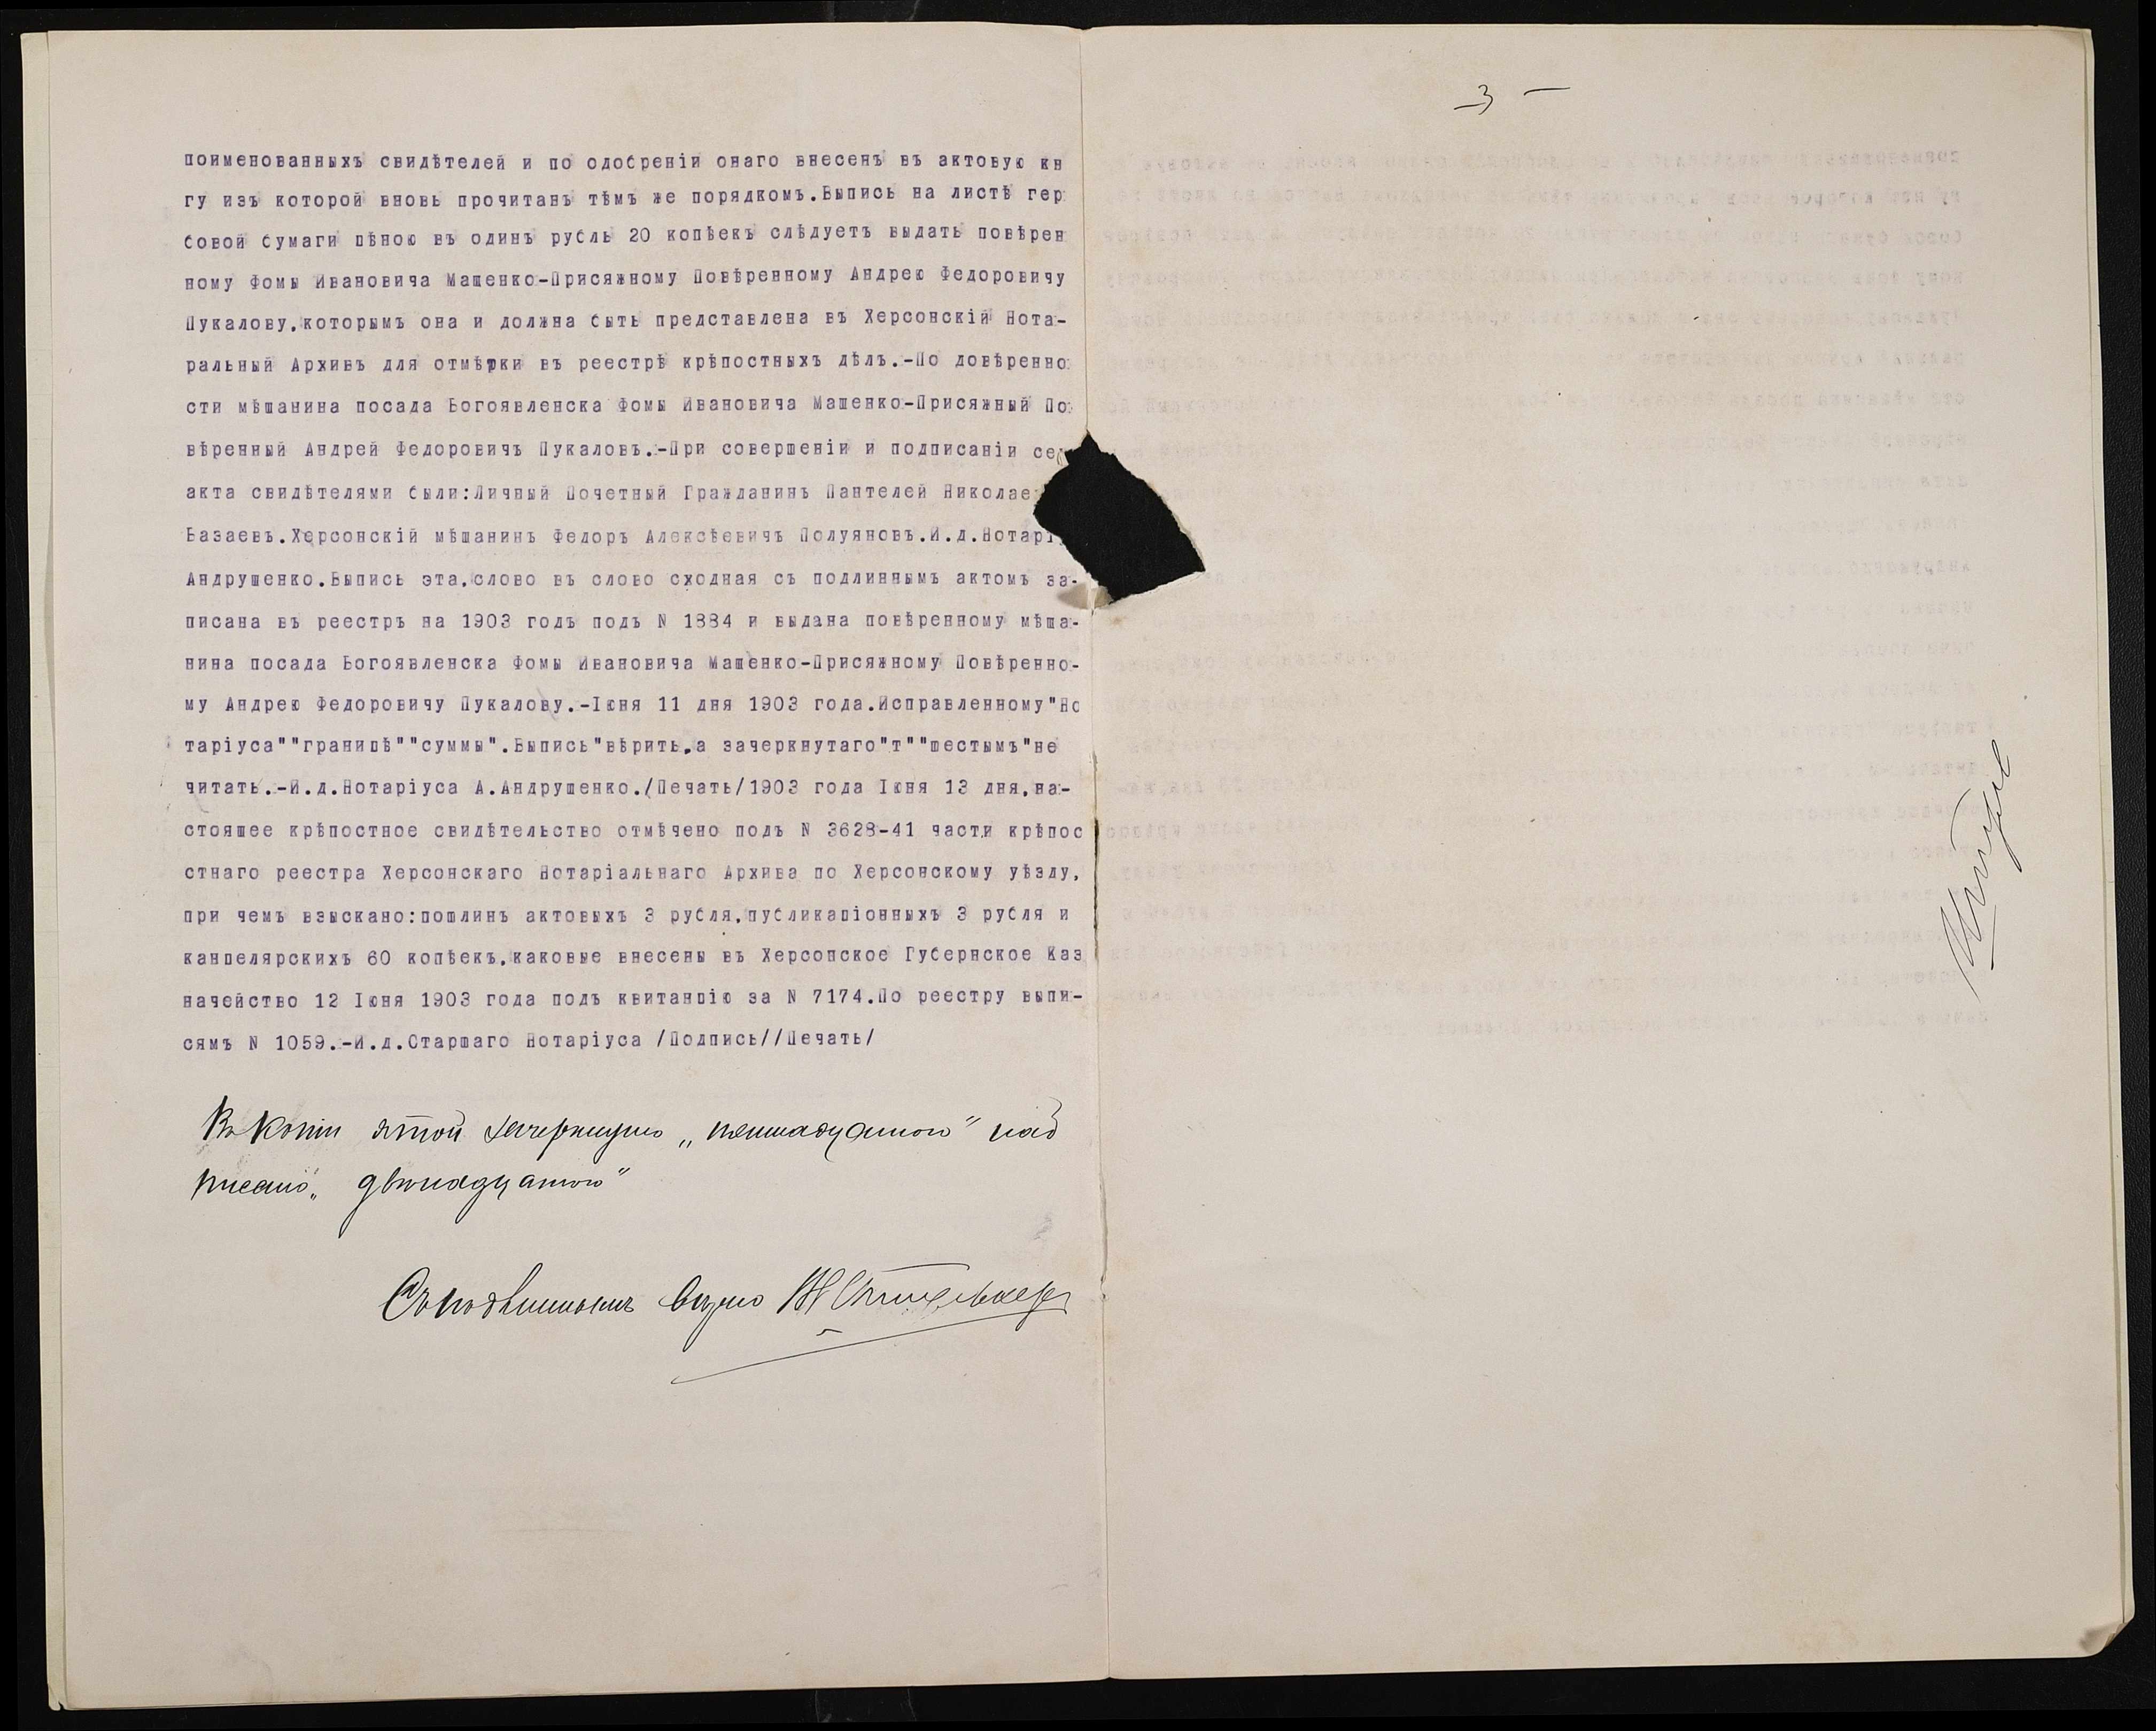 поименованныхъ свидѣтелей и по одобреніи онаго внесенъ въ актовую кн
гу изъ которой вновь прочитанъ тѣмъ же порядкомъ.Выпись на листѣ гер
бовой бумаги цѣною въ одинъ рубль 20 копѣекъ слѣдуетъ выдать повѣрен
ному Фомы Ивановича Мащенко-Присяжному Повѣренному Андрею Федоровичу
Цукалову,которымъ она и должна быть представлена въ Херсонскій Нота-
ральный Архивъ для отмѣтки въ реестрѣ крѣпостныхъ дѣлъ.-По довѣренно
сти мѣщанина посада Богоявленска Фомы Ивановича Мащенко-Присяжный По
вѣренный Андрей Федоровичъ Цукаловъ.-При совершеніи и подписаніи се
акта свидѣтелями были:Личный Почетный Гражданинъ Пантелей Николае
Базаевъ.Херсонскій мѣщанинъ Федоръ Алексѣевичъ Полуяновъ.И.д.Нотарі
Андрущенко.Выпись эта,слово въ слово сходная съ подлиннымъ актомъ за-
писана въ реестръ на 1903 годъ подъ N 1884 и выдана повѣренному мѣща-
нина посада Богоявленска Фомы Ивановича Мащенко-Присяжному Повѣренно-
му Андрею Федоровичу Цукалову.-Іюня 11 дня 1903 года.Исправленному"Но
таріуса""границѣ""суммы".Выпись"вѣрить,а зачеркнутаго"т""шестымъ"не
читать.-И.д.Нотаріуса А.Андрущенко./Печать/1903 года Іюня 13 дня,на-
стоящее крѣпостное свидѣтельство отмѣчено подъ N 3628-41 части крѣпос
стнаго реестра Херсонскаго Нотаріальнаго Архива по Херсонскому уѣзду,
при чемъ взыскано:пошлинъ актовыхъ 3 рубля,публикаціонныхъ 3 рубля и
канцелярскихъ 60 копѣекъ,каковые внесены въ Херсонское Губернское Каз
начейство 12 Іюня 1903 года подъ квитанцію за N 7174.По реестру выпи-
сямъ N 1059.-И.д.Старшаго Нотаріуса /Подпись//Печать/
Въ копіи этой зачеркнуто „пятнадцатого" над
писано „двѣнадцатого"
Съ подлиннымъ вѣрно
3 —